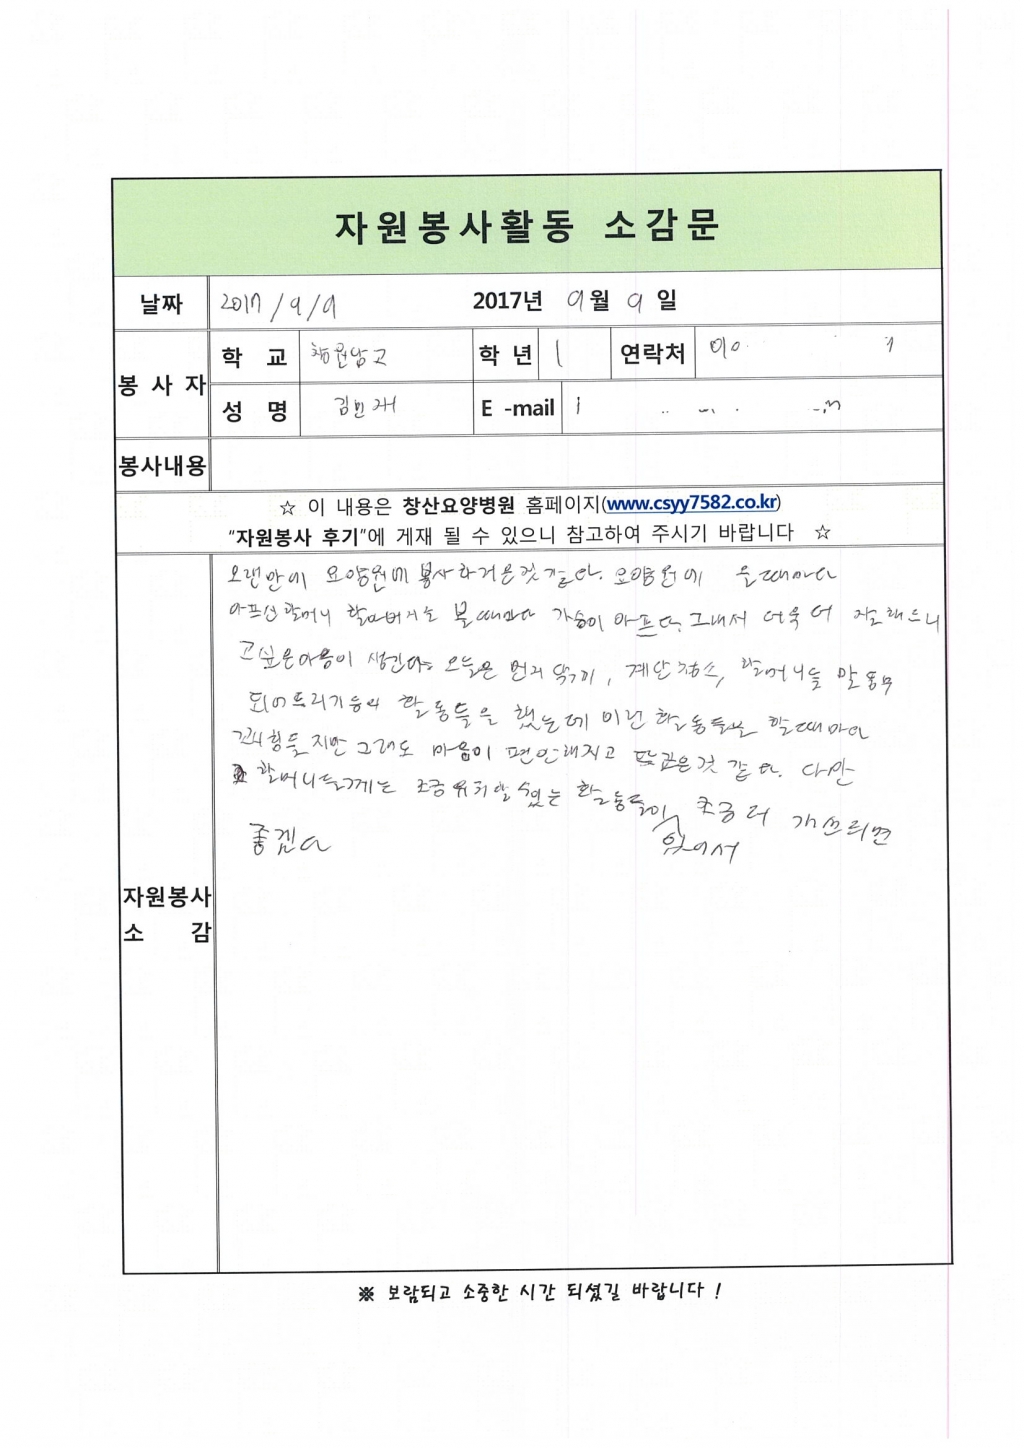 자원봉사활동 소감문
날짜 2017/9/9 2017년 9월 9일
봉사자 학교 창원남고 학년 1 연락처 010
성명 김민재 E-mail
봉사내용
☆ 이 내용은 창산요양병원 홈페이지(www.csyy7582.co.kr)
"자원봉사 후기"에 게재 될 수 있으니 참고하여 주시기 바랍니다 ☆
자원봉사 소감
오랜만에 요양원에 봉사하러온것 같다. 요양원에 올때마다
아프신 할머니 할아버지를 볼때마다 가슴이 아프다. 그래서 더욱 더 잘해드리
고싶은마음이 생긴다. 오늘은 먼지 닦기, 계단청소, 할머니들 말동무
되어드리기등의 활동들을 했는데 이런 활동들을 할때마다
힘들지만 그래도 마음이 편안해지고 뜻깊은것 같다. 다만
할머니들께는 조금 유치할수있는 활동들이 있어서 조금 더 개선되면
좋겠다
※ 보람되고 소중한 시간 되셨길 바랍니다 !